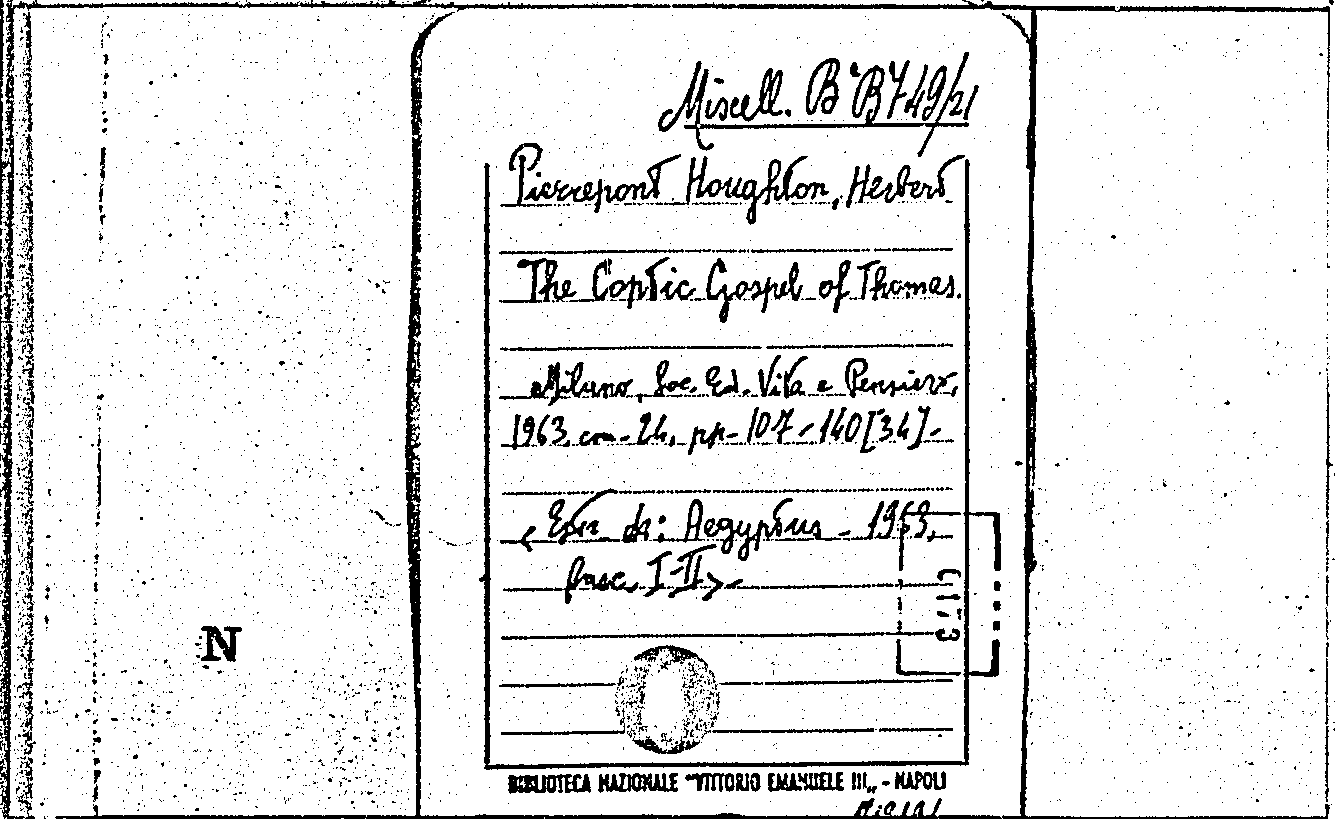 Miscell. B.B749/21
Pierrepont Houghton, Herbert
The Coptic Gospel of Thomas.
Milano, Soc. Ed. Vita e Pensiero,
1963, cm. 24, pp. 107-140 [34].
<Estr. di: Aegyptus - 1963,
fasc. I-II>.
N
BIBLIOTECA NAZIONALE "VITTORIO EMANUELE III„ - NAPOLI